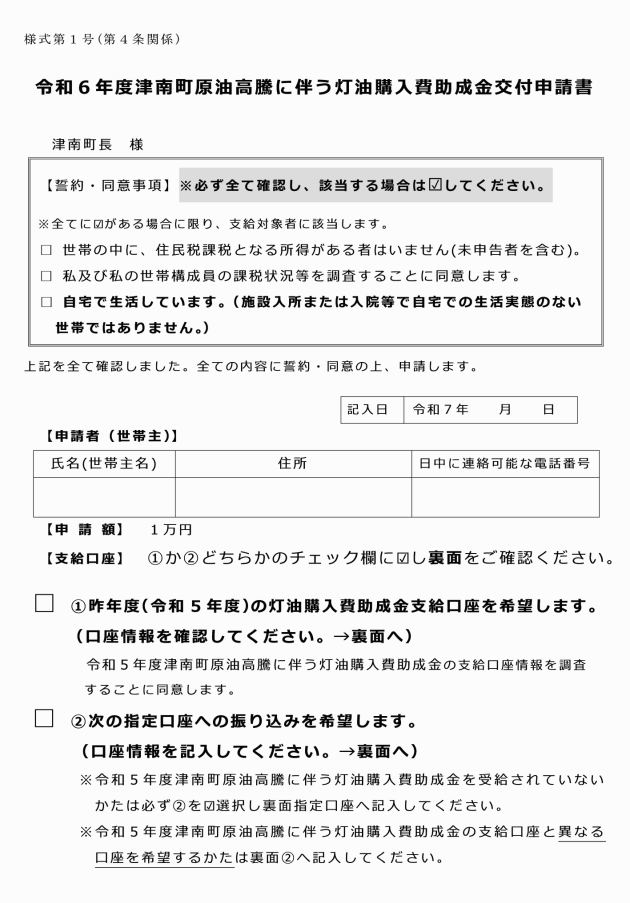 様式第１号(第４条関係)
令和６年度津南町原油高騰に伴う灯油購入費助成金交付申請書
津南町長　様
【誓約・同意事項】※必ず全て確認し、該当する場合は☑してください。
※全てに☑がある場合に限り、支給対象者に該当します。
□ 世帯の中に、住民税課税となる所得がある者はいません(未申告者を含む)。
□ 私及び私の世帯構成員の課税状況等を調査することに同意します。
□ 自宅で生活しています。（施設入所または入院等で自宅での生活実態のない
世帯ではありません。）
上記を全て確認しました。全ての内容に誓約・同意の上、申請します。
記入日　令和７年　　月　　日
【申請者（世帯主）】
氏名(世帯主名)　住所　日中に連絡可能な電話番号
【申 請 額】　１万円
【支給口座】　①か②どちらかのチェック欄に☑し裏面をご確認ください。
□ ①昨年度（令和５年度）の灯油購入費助成金支給口座を希望します。
（口座情報を確認してください。→裏面へ）
令和５年度津南町原油高騰に伴う灯油購入費助成金の支給口座情報を調査
することに同意します。
□ ②次の指定口座への振り込みを希望します。
（口座情報を記入してください。→裏面へ）
※令和５年度津南町原油高騰に伴う灯油購入費助成金を受給されていない
かたは必ず②を☑選択し裏面指定口座へ記入してください。
※令和５年度津南町原油高騰に伴う灯油購入費助成金の支給口座と異なる
口座を希望するかたは裏面②へ記入してください。